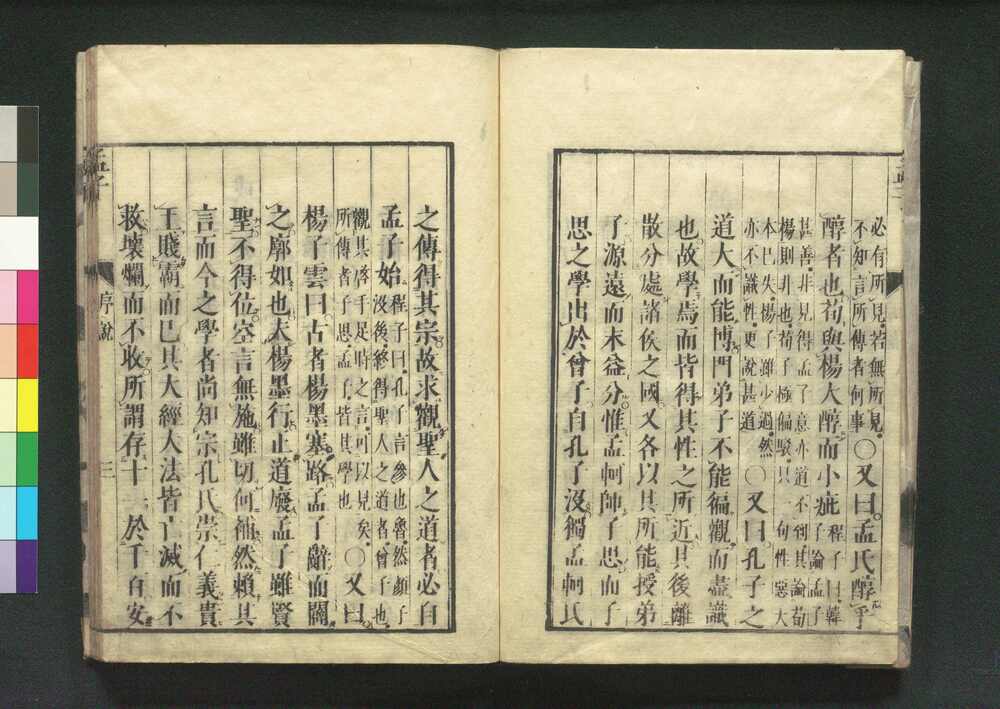 必有所見若無所見
不知言所傳者何事○又曰孟氏醇乎
醇者也荀與楊大醇而小疵程子曰韓子論孟子
甚善非見得孟子意亦道不到其論荀
楊則非也荀子極偏駁只一句性惡大
本已失楊子雖少過然
亦不識性更說甚道○又曰孔子之
道大而能博門弟子不能徧觀而盡識
也故學焉而皆得其性之所近其後離
散分處諸侯之國又各以其所能授弟
子源遠而末益分惟孟軻師子思而子
思之學出於曾子自孔子沒獨孟軻氏
之傳得其宗故求觀聖人之道者必自
孟子始程子曰孔子言參也魯然顏子
沒後終得聖人之道者曾子也
觀其啓手足時之言可以見矣
所傳者子思孟子皆其學也○又曰
楊子雲曰古者楊墨塞路孟子辭而闢
之廓如也夫楊墨行正道廢孟子雖賢
聖不得位空言無施雖切何補然賴其
言而今之學者尚知宗孔氏崇仁義貴
王賤霸而已其大經大法皆亡滅而不
救壞爛而不收所謂存十一於千百安
孟子
序說
三